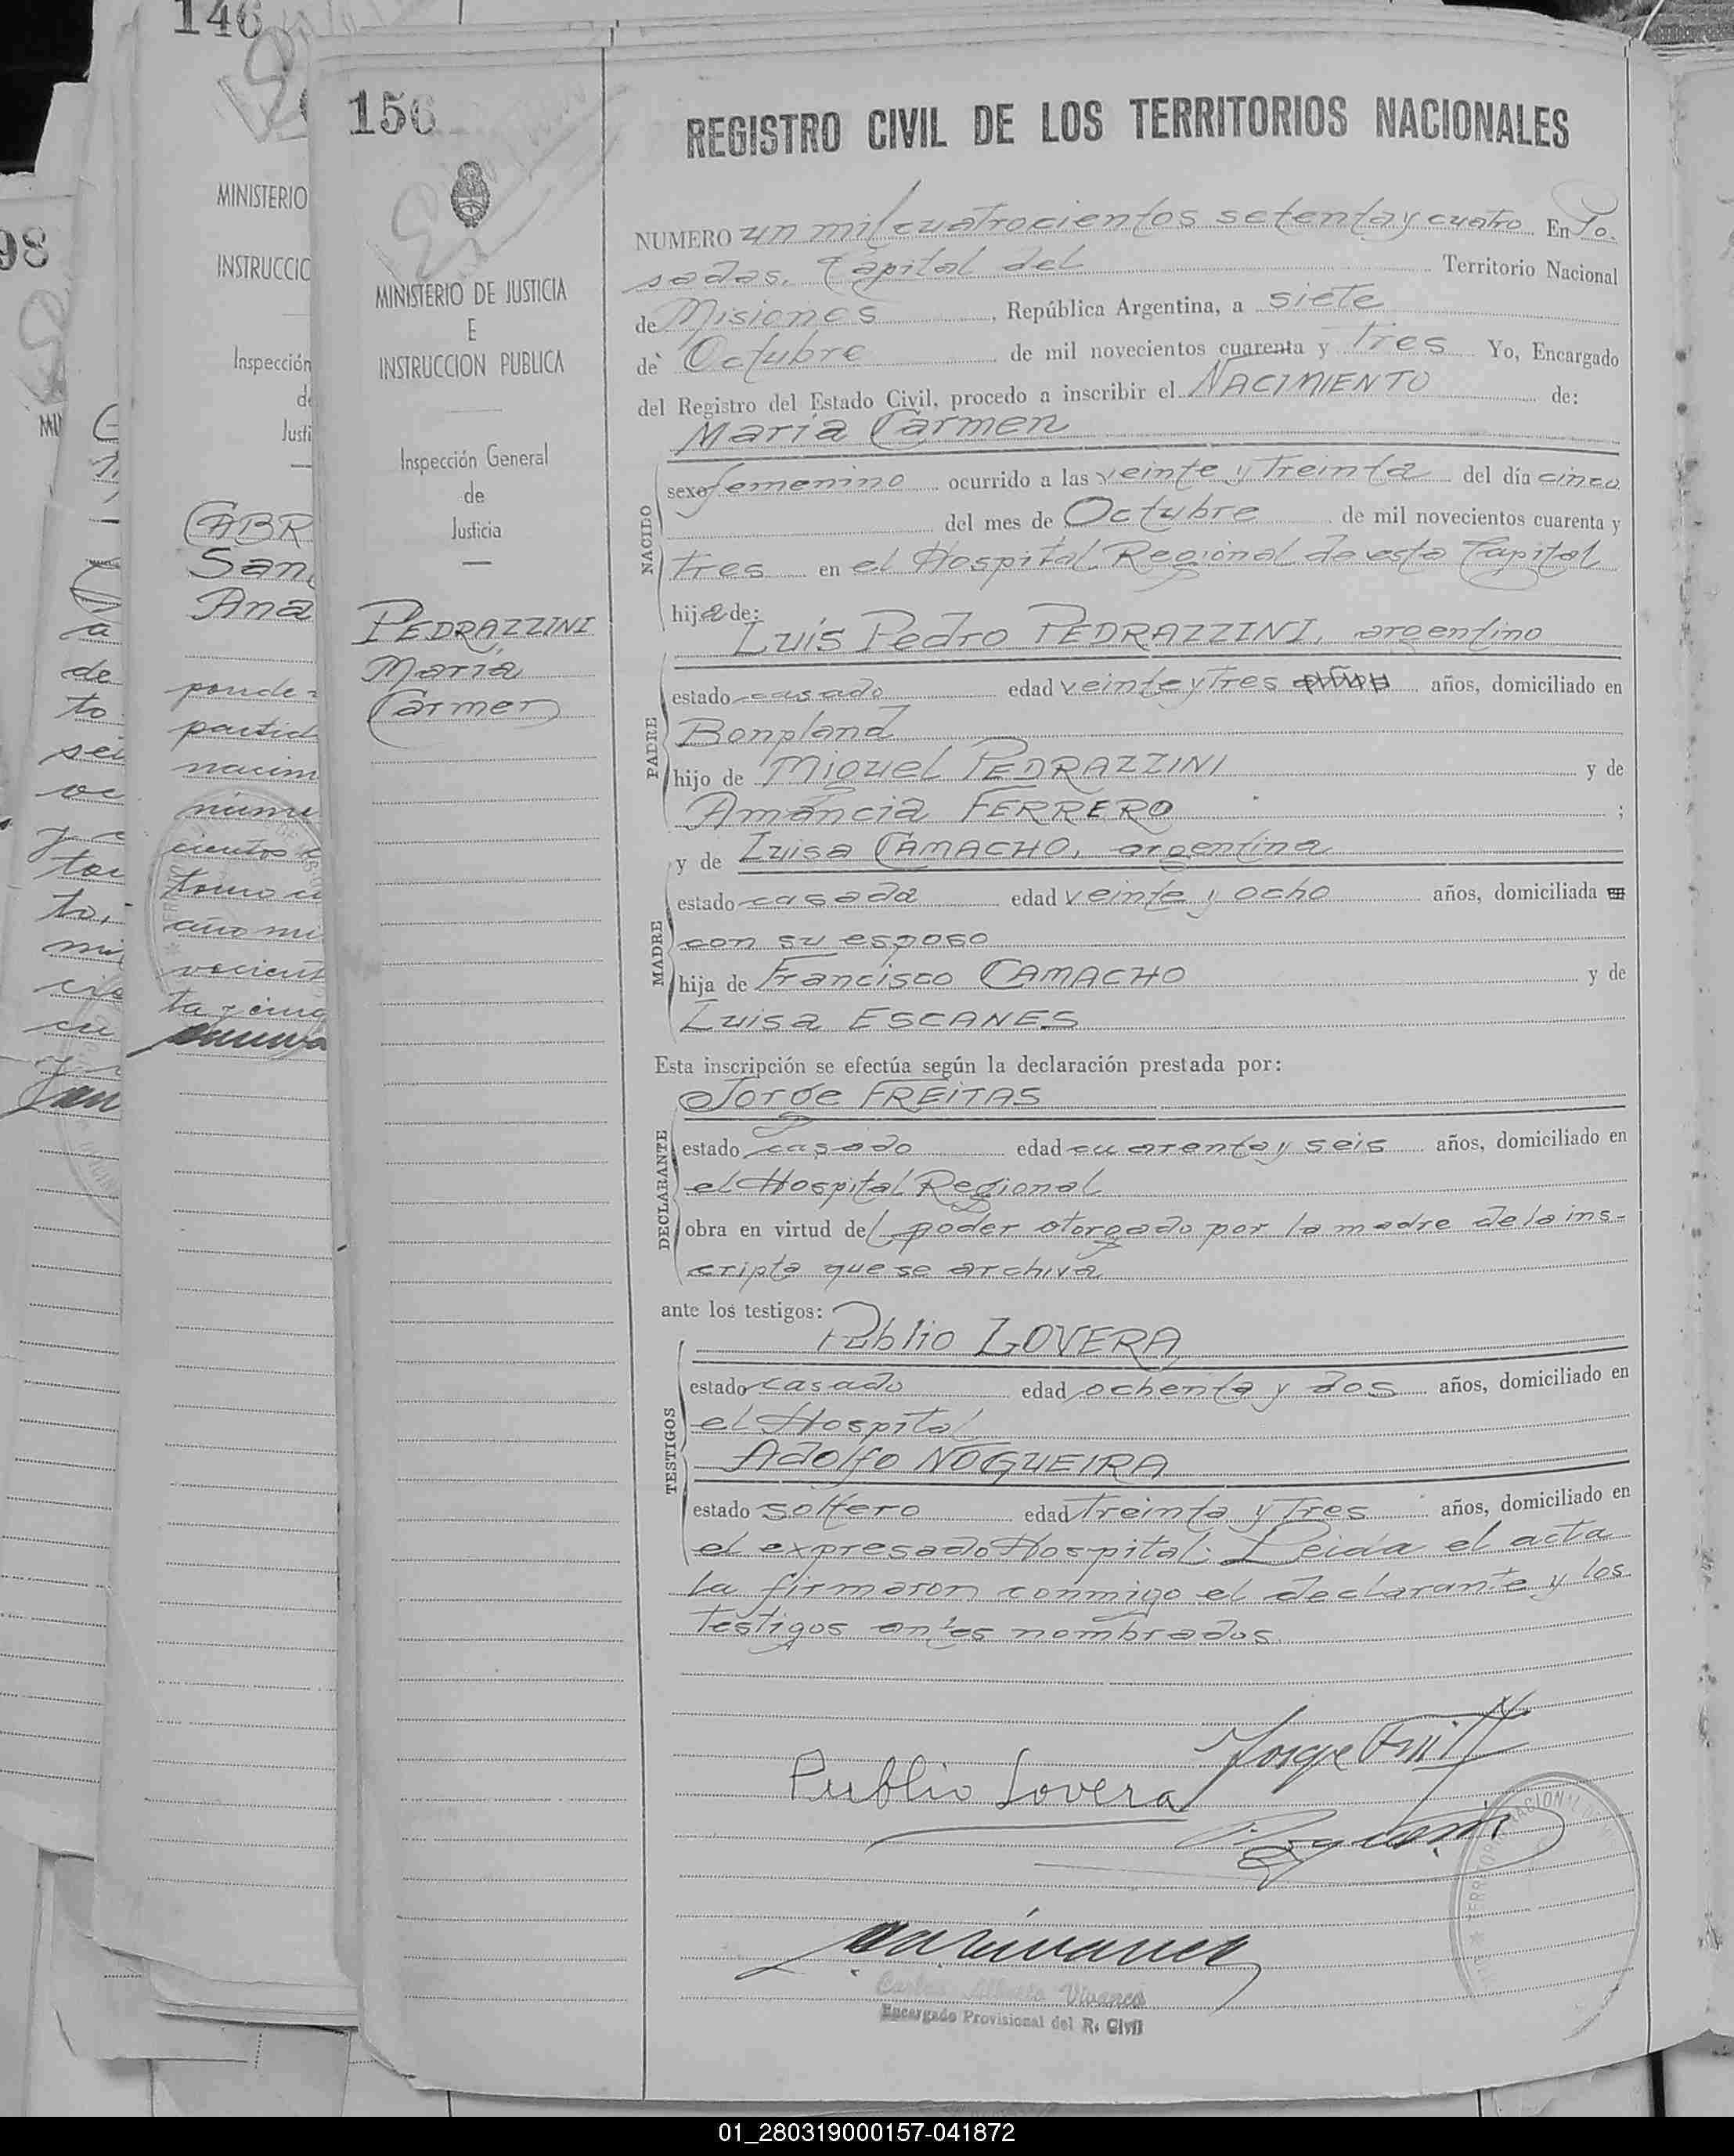 146
98
MINISTERIO
INSTRUCCIO
Inspección
de
Justi
CABR
San
Ana
ponde
partid
nacim
núme
cientos
tomo
año mi
vecient
ta y cinc
a
de
to
sei
oc
to
mi
156
MINISTERIO DE JUSTICIA
E
INSTRUCCION PUBLICA
Inspección General
de
Justicia
PEDRAZZINI
María
Carmen
REGISTRO CIVIL DE LOS TERRITORIOS NACIONALES
NUMERO un mil cuatrocientos setenta y cuatro En Po-
sadas, Capital del Territorio Nacional
de Misiones, República Argentina, a siete
de Octubre de mil novecientos cuarenta y Tres Yo, Encargado
del Registro del Estado Civil, procedo a inscribir el NACIMIENTO de:
María Carmen
NACIDO
sexo femenino ocurrido a las veinte y Treinta del día cinco
del mes de Octubre de mil novecientos cuarenta y
tres en el Hospital Regional de esta Capital
hija de:
Luis Pedro PEDRAZZINI, argentino
PADRE
estado casado edad veinte y Tres años, domiciliado en
Bonpland
hijo de Miguel PEDRAZZINI y de
Amancia FERRERO ;
y de Luisa CAMACHO, argentina
MADRE
estado casada edad veinte y ocho años, domiciliada
con su esposo
hija de Francisco CAMACHO y de
Luisa ESCANES
Esta inscripción se efectúa según la declaración prestada por:
Jorge FREITAS
DECLARANTE
estado casado edad cuarenta y seis años, domiciliado en
el Hospital Regional
obra en virtud del poder otorgado por la madre de la ins-
cripta que se archiva
ante los testigos:
Publio LOVERA
TESTIGOS
estado casado edad ochenta y dos años, domiciliado en
el Hospital
Adolfo NOGUEIRA
estado soltero edad Treinta y Tres años, domiciliado en
el expresado Hospital. Leida el acta
la firmaron conmigo el declarante y los
Testigos antes nombrados.
Jorge
Publio Lovera
Carlos Alberto Vivanco
Encargado Provisional del R. Civil
01_280319000157-041872